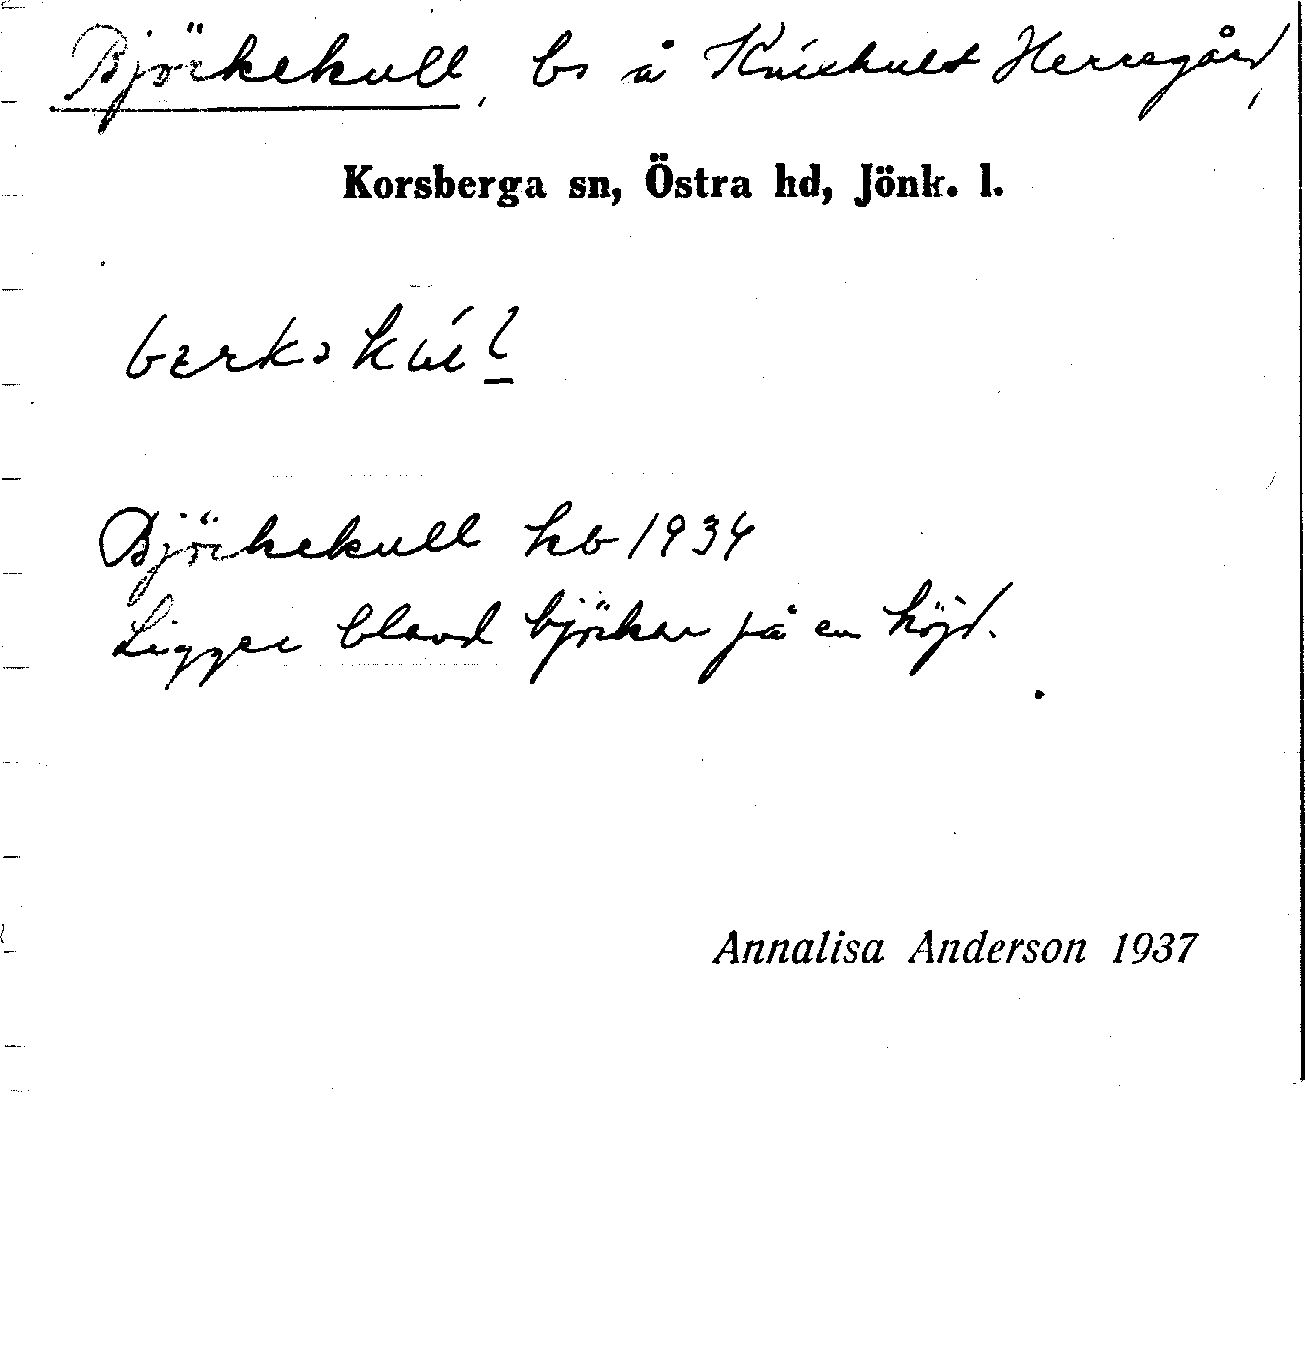 Björkekull, bs å Knixhult Herregård,
Korsberga sn, Östra hd, Jönk. l.
Björkekull hb 1934
Ligger bland björkar på en höjd.
Annalisa Anderson 1937